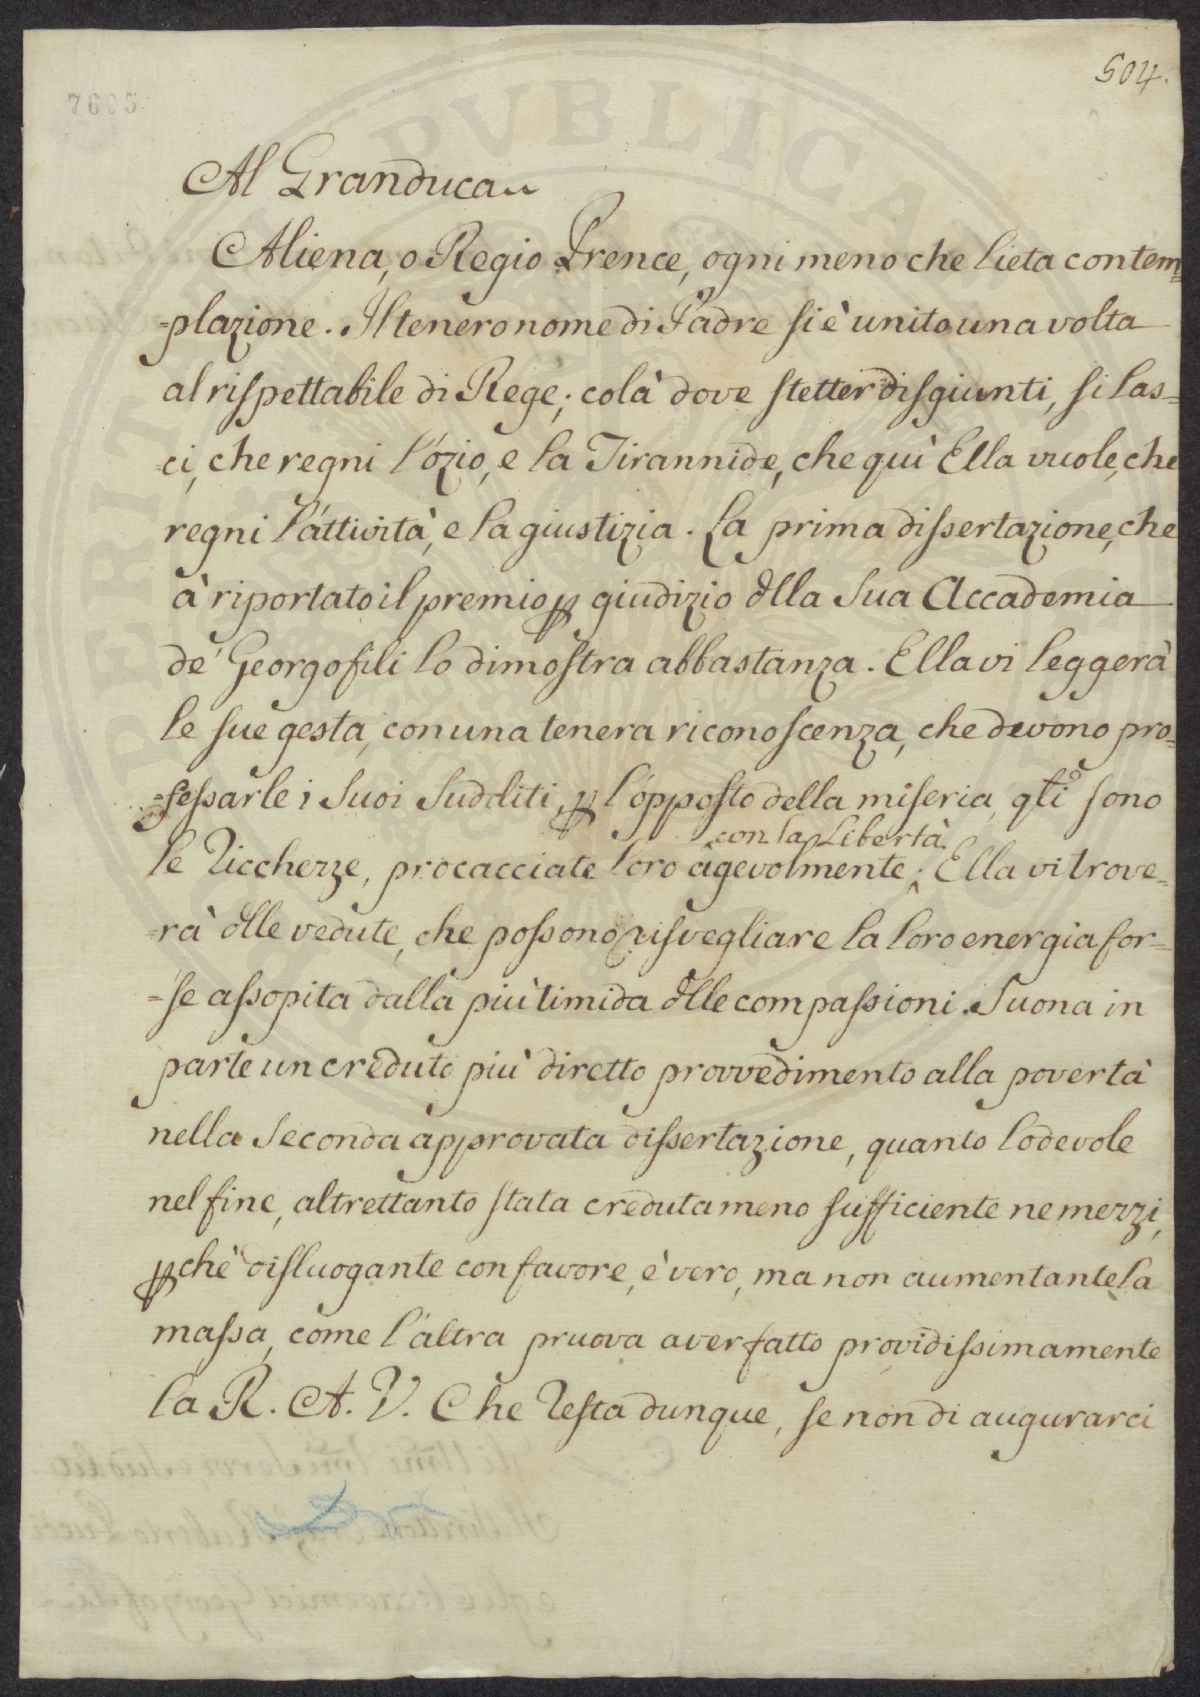 504.
7605
Al Granduca
Aliena, o Regio Prence, ogni meno che lieta contem=
=plazione. Il tenero nome di Padre si è unito una volta
al rispettabile di Rege; colà dove stetter disgiunti, si las=
=ci, che regni l'ózio, e la Tirannide, che quì Ella vuole, che
regni l'áttività, e la giustizia. La prima dissertazione, che
à riportato il premio p giudizio dlla Sua Accademia
de' Georgofili lo dimostra abbastanza. Ella vi leggerà
le sue gesta, con una tenera riconoscenza, che devono pro=
=fessarle i Suoi Sudditi, p l'ópposto della miseria, qti sono
con la Libertà
le Ricchezze, procacciate loro agevolmente; Ella vi trove=
=rà dlle vedute, che possono risvegliare la loro energia for=
=se assopita dalla più timida dlle compassioni. Suona in
parte un creduto più diretto provvedimento alla povertà
nella Seconda approvata dissertazione, quanto lodevole
nel fine, altrettanto stata creduta meno sufficiente ne mezzi,
pchè disluogante con favore, è vero, ma non aumentante la
massa, come l'áltra pruova aver fatto providissimamente
la R. A. V. Che resta dunque, se non di augurarci